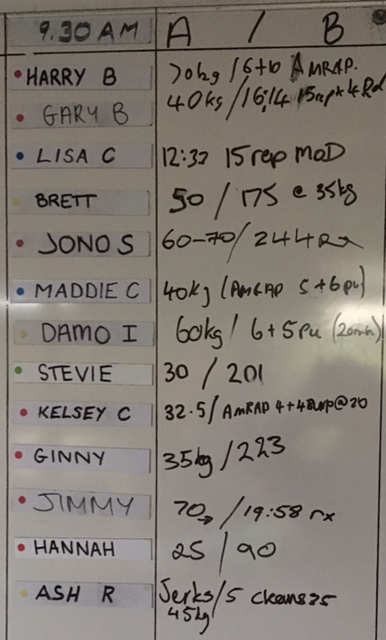 9.30 AM A / B
HARRY B 70kg / 6+10 AMRAP.
GARY B 40kg / 16:14 15rep 4Rd
LISA C 12:32 15 rep MOD
BRETT 50 / 175 @ 35kg
JONO S 60-70 / 244 Rx
MADDIE C 40kg (AMRAP 5+6pu)
DAMO I 60kg / 6+5pu (20min)
STEVIE 30 / 201
KELSEY C 32.5 / AMRAP 4+4 @20
GINNY 35kg / 223
JIMMY 70 / 19:58 rx
HANNAH 25 / 90
ASH R Jerks / 5 cleans 35
45kg